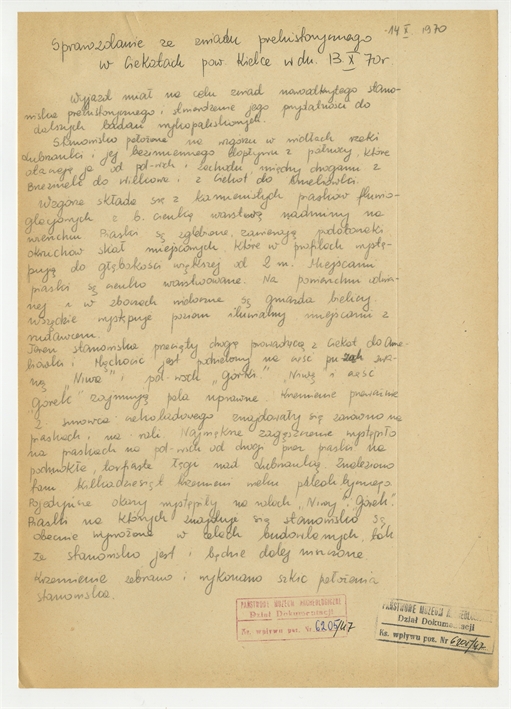 14 X 1970
Sprawozdanie ze zwiadu prehistorycznego
w Ciekotach pow. Kielce w dn. 13. X 70r
Wyjazd miał na celu zwiad nowoodkrytego stano-
wiska prehistorycznego i stwierdzenie jego przydatności do
dalszych badań wykopaliskowych.
Stanowisko położone na wzgórzu w widłach rzeki
Lubrzanki i jej bezimiennego dopływu z północy, które
oblewają je od pd-wsch i zachodu między drogami z
Brzezinek do Wilkowa i z Ciekot do Ameliówki.
Wzgórze składa się z kamienistych piasków fluwio-
glacjalnych z b. cienką warstwą nadminy na
wierzchu. Piaski są zglebione, zawierają
okruchów skał miejscowych, które w profilach wystę-
pują do głębokości większej od 2 m. Miejscami
piaski są cienko warstwowane. Na powierzchni
i w zboczach widoczne są gniazda
wszędzie występuje poziom iluwialny miejscami z
rudawcem.
Teren stanowiska przecięty drogą prowadzącą z Ciekot do Ame-
liówki i Mąchocic jest podzielony na część pn zach zwa-
ną „Niwa” i pd-wsch „Górki”. „Niwę” i część
„Górek” zajmują pola uprawne. Krzemienie przeważnie
z surowca czekoladowego znajdowały się zarówno na
piaskach, na roli. Największe zagęszczenie wystąpiło
na piaskach na pd-wsch od drogi przez piaski na
podmokłe, torfiaste łęgi nad Lubrzanką. Znaleziono
tam kilkadziesiąt krzemieni wieku paleolitycznego.
Pojedyńcze okazy wystąpiły na rolach „Niwy i Górek”.
Piaski na których znajduje się stanowisko są
obecnie wywożone w celach budowlanych, tak
że stanowisko jest i będzie dalej niszczone.
Krzemienie zebrano i wykonano szkic położenia
stanowiska.
PAŃSTWOWE MUZEUM ARCHEOLOGICZNE
Dział Dokumentacji
Ks. wpływu poz. Nr 6205/47
PAŃSTWOWE MUZEUM ARCHEOLOGICZNE
Dział Dokumentacji
Ks. wpływu poz. Nr 6205/47